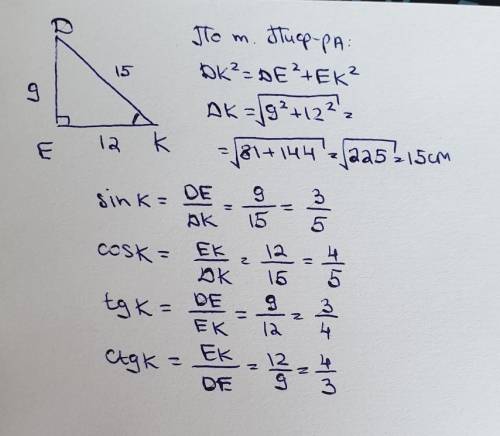 D
15
9
E
12
K
По т. Пиф-рА:
DK² = DE² + EK²
DK = √9² + 12² =
= √81 + 144 = √225 = 15 см
sin K = DE/DK = 9/15 = 3/5
cos K = EK/DK = 12/15 = 4/5
tg K = DE/EK = 9/12 = 3/4
ctg K = EK/DE = 12/9 = 4/3